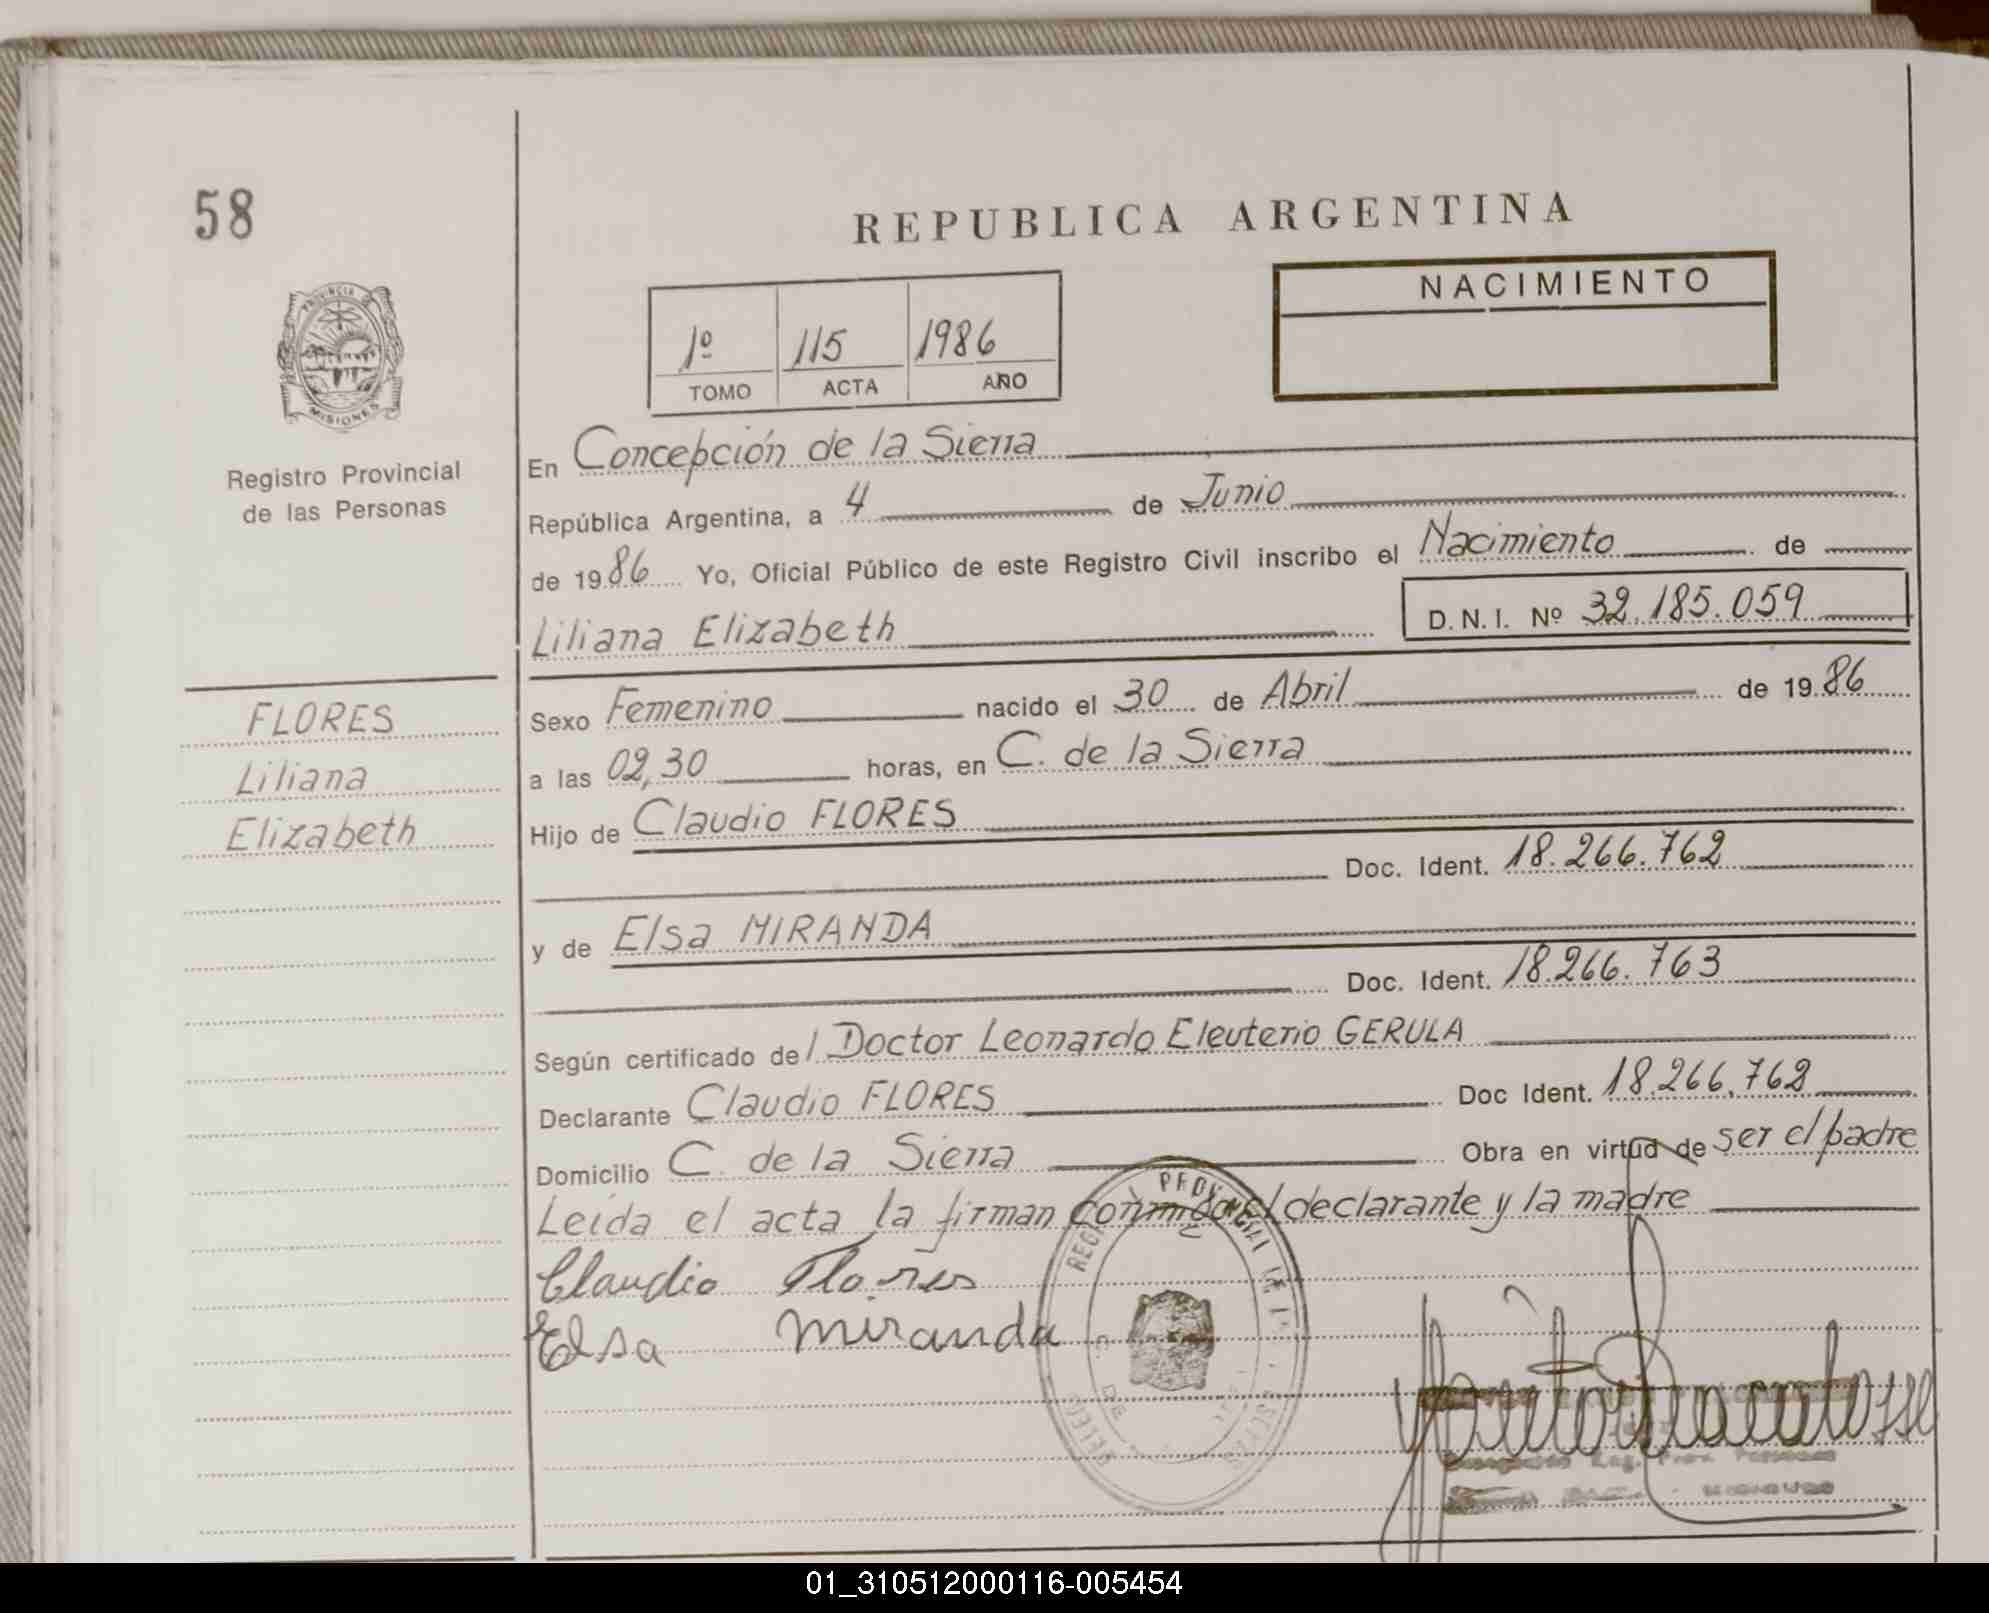 58
REPUBLICA ARGENTINA
NACIMIENTO
1º 115 1986
TOMO ACTA AÑO
PROVINCIA DE
MISIONES
Registro Provincial
de las Personas
En Concepción de la Sierra
República Argentina, a 4 de Junio
de 1986 Yo, Oficial Público de este Registro Civil inscribo el Nacimiento de
Liliana Elizabeth D.N.I. Nº 32.185.059
FLORES
Liliana
Elizabeth
Sexo Femenino nacido el 30 de Abril de 1986
a las 02,30 horas, en C. de la Sierra
Hijo de Claudio FLORES
Doc. Ident. 18.266.762
y de Elsa MIRANDA
Doc. Ident. 18.266.763
Según certificado del Doctor Leonardo Eleuterio GERULA
Declarante Claudio FLORES Doc Ident. 18.266.762
Domicilio C. de la Sierra Obra en virtud de ser el padre
Leida el acta la firman conmigo el declarante y la madre
Claudio Flores
Elsa Miranda
REG PROVINCIAL DE
01_310512000116-005454